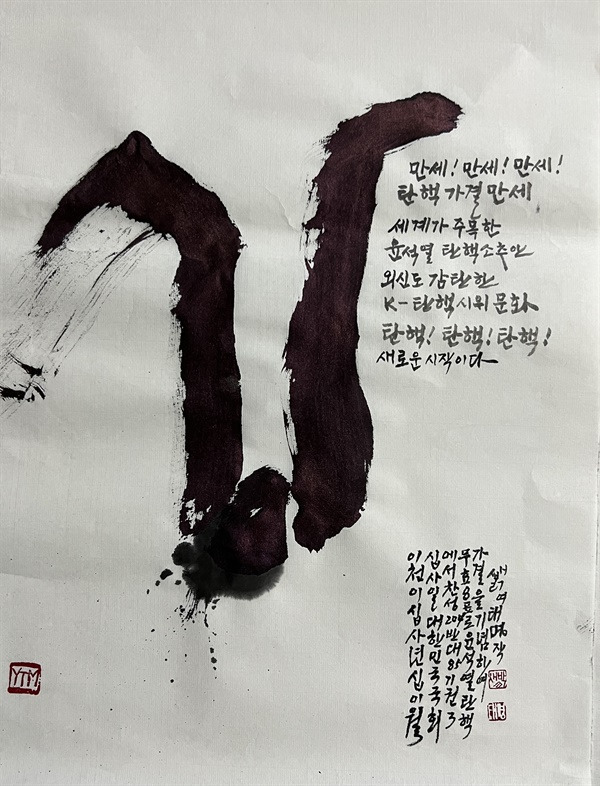 만세! 만세! 만세!
탄핵 가결 만세
세계가 주목한
윤석열 탄핵소추안
외신도 감탄한
K-탄핵시위 문화
탄핵! 탄핵! 탄핵!
새로운 시작이다
이천이십사년십이월
십사일대한민국국회
에서찬성204반대85기권3
무효8표로윤석열탄핵
가결을기념하여
여태명작
YTM